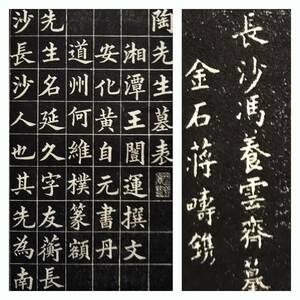 陶先生墓表
湘潭王闓運撰文
安化黃自元書丹
道州何維樸篆額
先生名延久字友蘅長
沙長沙人也其先為南
長沙馮養雲齋摹
金石蔣疇鐫